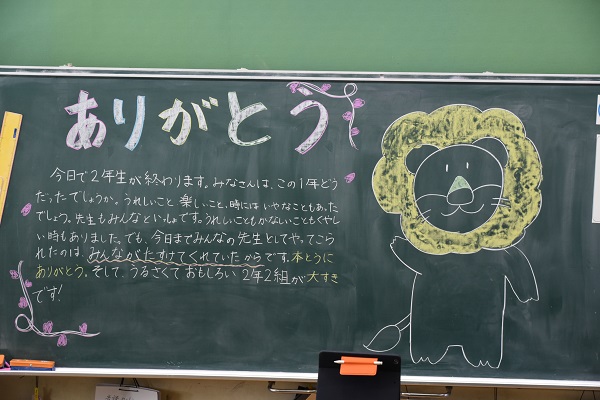 ありがとう
今日で2年生が終わります。みなさんは、この1年どう
だったでしょうか。うれしいこと 楽しいこと、時には いやなこともあった
でしょう。先生もみんなといっしょです。うれしいこともかないこともくやし
い時もありました。でも、今日までみんなの先生としてやってこ
られたのは、みんながたすけてくれていたからです。本とうに
ありがとう。そして、うるさくて おもしろい 2年2組が 大すき
です!